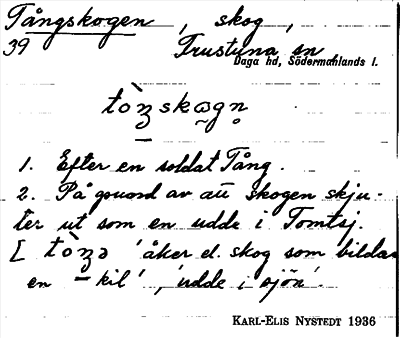 Tångskogen , skog ,
39 Frustuna sn,
Daga hd, Södermanlands l.
tòŋskωgn̥
1. Efter en soldat Tång.
2. På grund av att skogen skju-
ter ut som en udde i Tomtsj.
[tòŋə 'åker el. skog som bildar
en - kil', 'udde i sjön'.
KARL-ELIS NYSTEDT 1936